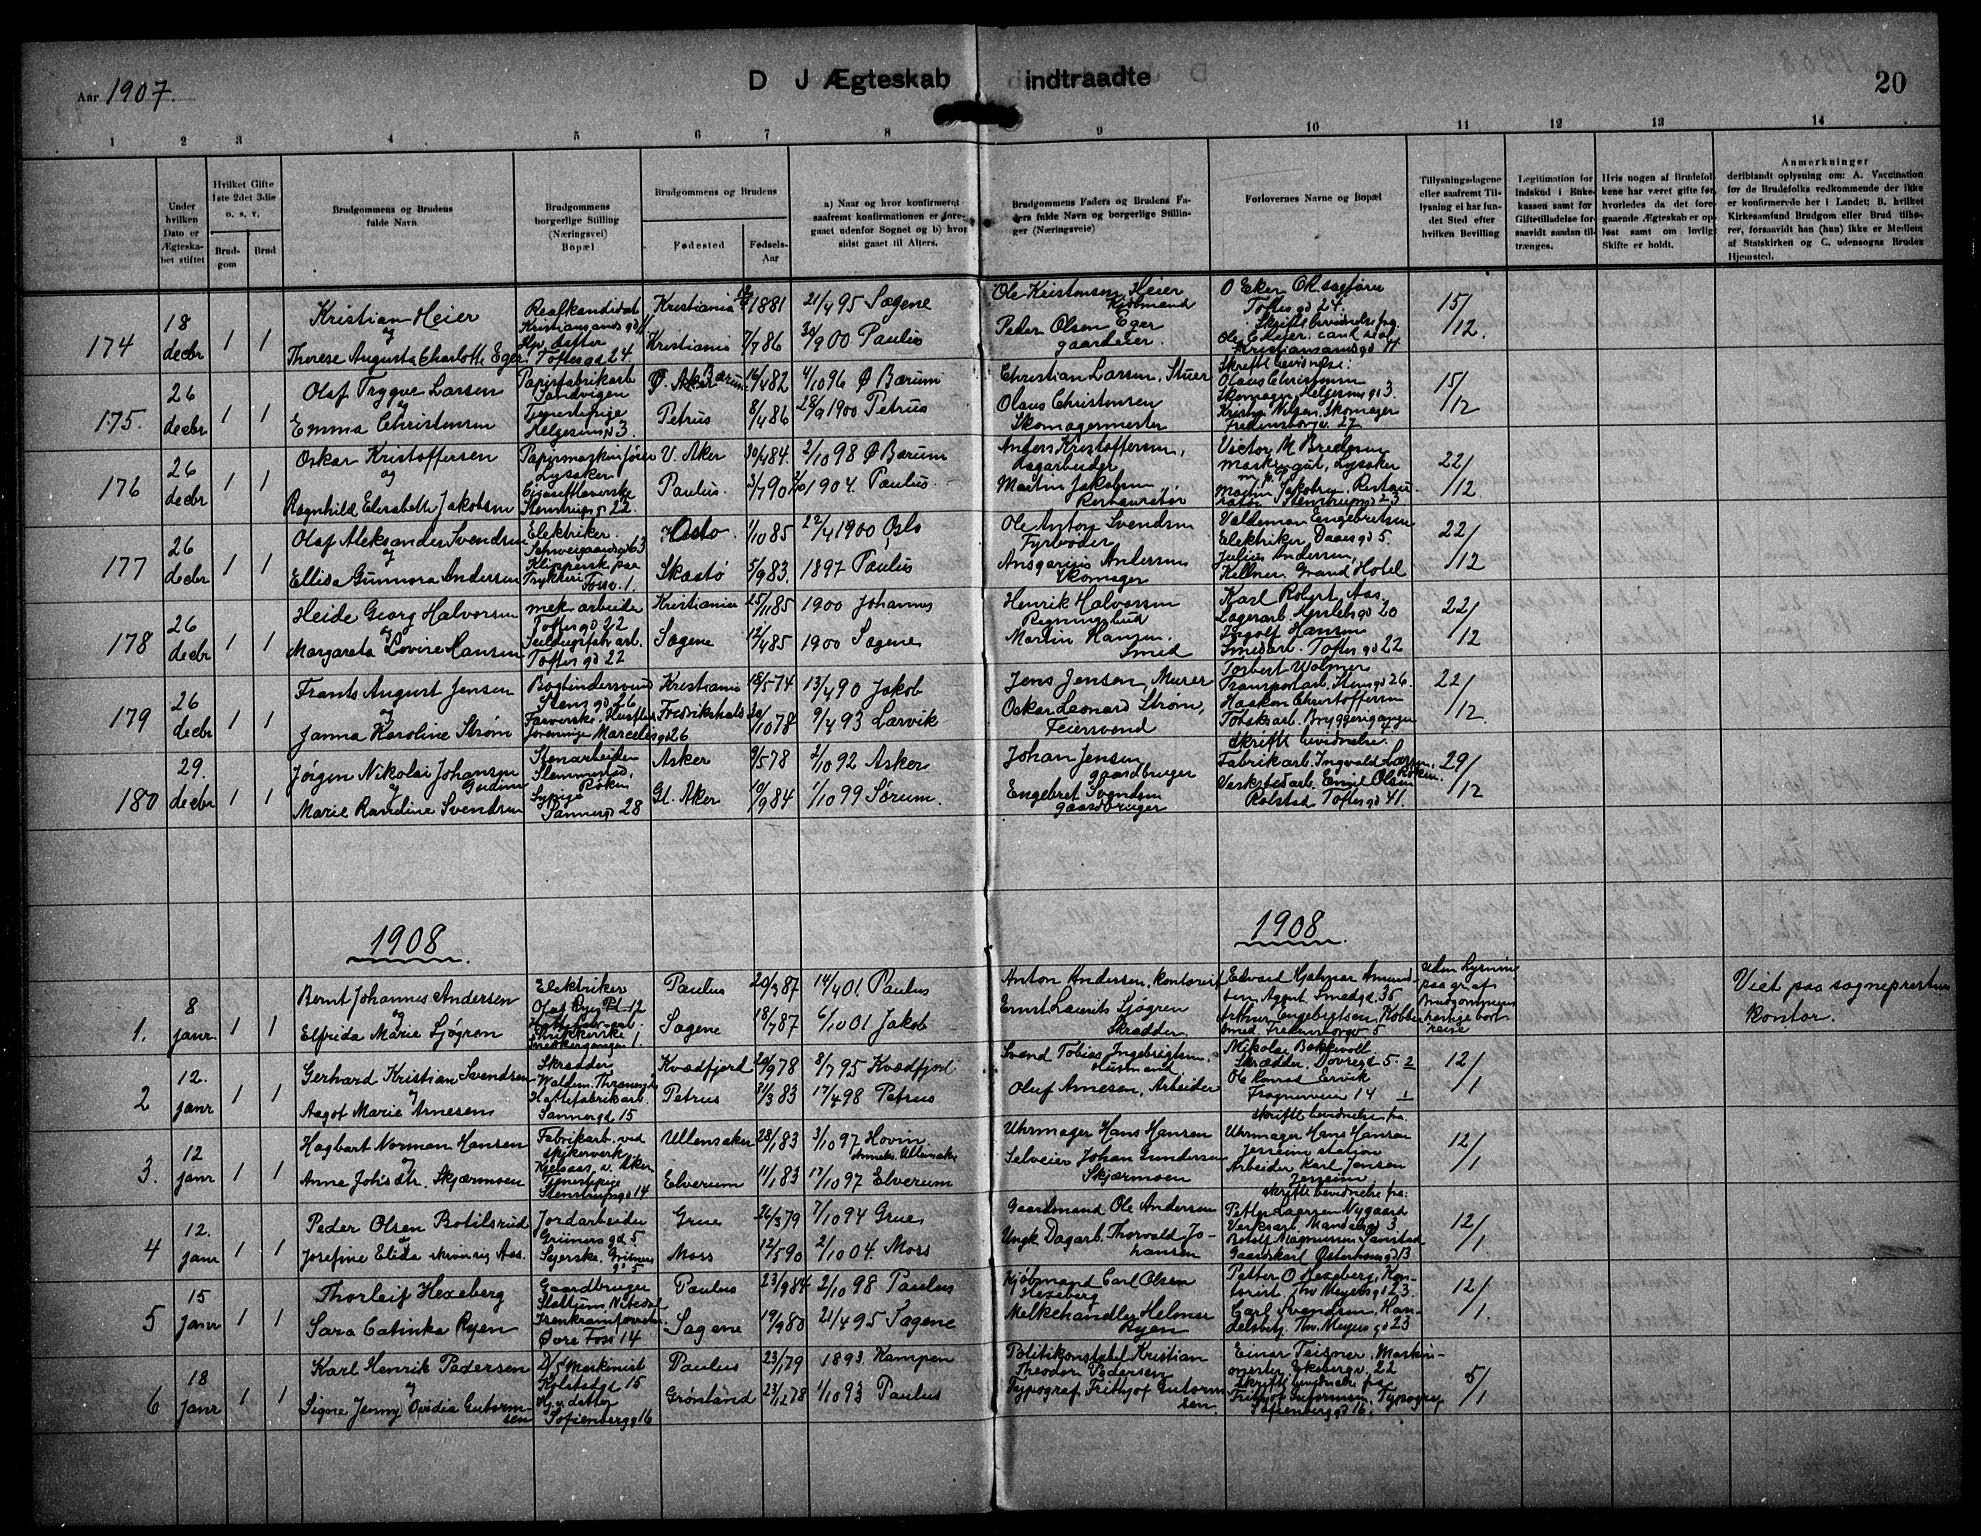 Aar 1907.
D J Ægteskab indtraadte
20
1 2 3 4 5 6 7 8 9 10 11 12 13 14
Under hvilken Dato er Ægteskabet stiftet
Hvilket Gifte 1ste 2det 3die o. s. v,
Brudgom
Brud
Brudgommens og Brudens fulde Navn.
Brudgommens borgerlige Stilling (Næringsvei) Bopæl
Brudgommens og Brudens
Fødested
Fødsels-Aar
a) Naar og hvor konfirmeret saafremt konfirmationen er foregaaet udenfor Sognet og b) hvor sidst gaaet til Alters.
Brudgommens Faders og Brudens Faders fulde Navn og borgerlige Stillinger (Næringsveie)
Forlovernes Navne og Bopæl
Tillysningsdagene eller saafremt Tillysning ei har fundet Sted efter hvilken Bevilling
Legitimation for Indskud i Enkekassen samt for Giftetilladelse forsaavidt saadan tiltrænges.
Hvis nogen af Brudefolkene har været gifte før, hvorledes da det foregaaende Ægteskab er opløst samt om lovligt Skifte er holdt.
Anmerkninger
deriblandt oplysning om: A. Vaccination før de Brudefolks vedkommende der ikke er konfirmerede her i Landet; B. hvilket Kirkesamfund Brudgom eller Brud tilhører, forsaavidt han (hun) ikke er Medlem af Statskirken og C, udensogns Bruden Hjemsted.
174
18 decbr
1 1
Kristian Heier
og
Therese Augusta Charlotte Eger.
Realkandidat
Kristiansands gd
Hv. datter
Toftes gd 24
Kristiania 1881
Kristiania 7/7 86
21/4 95 Sagene
30/9 00 Paulus
Ole Kristensen Heier
Kjøbmand
Peder Olsen Eger
gaardeier.
O Eker O.R.sagfører
Toftes gd 24.
Skriftl. bevidnelse fra
Kristiansands gd 11
15/12.
175.
26 decbr
1 1
Olaf Trygve Larsen
og
Emma Christensen
Papirfabrikarb
Sandvigen
Tjenestepige
Helgesens g 3.
Ø. Aker Bærum 16/4 82
Petrus 8/4 86
4/10 96 Ø Bærum
28/9 1900 Petrus
Christian Larsen, Stuer
Olaus Christensen
Skomagermester
Skriftl. bevidnelse:
Olaus Christensen
Skomager Helgesens gd 3.
Kristian Nilsen, Skomager
Fredensborgv. 27
15/12
176
26 decbr
1 1
Oskar Kristoffersen
og
Ragnhild Elisabeth Jakobsen
Papirmaskinfører
Lysaker
Stenstrups gd 22.
V. Aker 30/4 84.
Paulus. 3/7 90
2/10 98 Ø Bærum
1904. Paulus.
Anders Kristoffersen,
dagarbeider
Martin Jakobsen
Restauratør
Victor M Bredesen
maskingut, Lysaker
Martin Jakobsen Restauratør
Stenstrups gd 23
22/12
177
26 decbr
1 1
Olaf Aleksander Svendsen
og
Ellida Gunnora Andersen
Elektriker.
Schweigaards gd 63
Klipperske paa
Trykkeri Fossv. 1.
Oslo. 1/10 85
Skatø 5/9 83.
22/4 1900 Oslo
1897 Paulus
Ole Anton Svendsen
Fyrbøder
Ansgarius Andersen
Skomager
Valdemar Engebretsen
Elektriker Daas gd 5.
Julius Andersen,
Kellner. Grand Hotel
22/12
178
26 decbr
1 1
Heide Georg Halvorsen
og
Margareta Lovise Hansen
mek arbeider
Toftes gd 22
Seildugsfabr. arb.
Toftes gd 22
Kristiania 25/11 85
Sagene 12/4 85
1900 Johannes
1900 Sagene
Henrik Halvorsen
Regningsbud
Martin Hansen.
Smed
Karl Robert Aas.
Lagerarb. gd 20
Ingolf Hansen
Smedarb. Toftes gd 22
22/12
179
26 decbr
1 1
Frants August Jensen
og
Janna Karoline Strøm
Bogbindersvend
Stens gd 26
Farverske,
Marcelis gd 26
Kristiania 18/5 74
Fredrikshald 30/10 78
13/4 90 Jakob
9/4 93 Larvik
Jens Jensen, Murer
Oskar Leonard Strøm,
Feiersvend
Torbert Wolmer
Transportarb. Stens gd 26.
Haakon Christoffersen
Tobaksarb. Bryggerigangen
22/12.
180
29. decbr
1 1
Jørgen Nikolai Johansen
og
Marie Randine Svendsen
Stenarbeider
Slemmestad,
Røken
Sypige
Sannergd 28
Asker 9/5 78
Gl. Aker 10/9 84
2/10 92 Asker
1/10 99 Sørum.
Johan Jensen
gaardbruger
Engebret Svendsen
gaardbruger
Skriftl bevidnelse.
Fabrikarb. Ingvald Larsen, Røken.
Verkstedarb Emil Olsen
Rolstad Toftes gd 41.
29/12
1908
1908.
1.
8 janr
1 1
Bernt Johannes Andersen
og
Elfrida Marie Sjøgren
Elektriker
Olaf Ryes Pl 12
Snedkergangen 1.
Paulus 20/3 87
Sagene 18/7 87
14/4 01. Paulus
6/10 01 Jakob
Anton Andersen, kontorist
Ernst Laurits Sjøgren
Skrædder.
Edvard Hjalmar Amundsen Agent Smedgd. 35
Arthur Engebrigtsen, Kobbersmed Fredensborgv 5
uden lysning
paa gr. af
Brudgommens
hastige bortreise
Viet paa sogneprestens
kontor.
2
12. janr
1 1
Gerhard Kristian Svendsen
og
Aagot Marie Arnesen
Skrædder
Waldem. Thranesgd
Hattefabrikarb.
Sannergd 15
Kvædfjord 20/9 78
Petrus 31/3 83
8/7 95 Kvædfjord
17/4 98 Petrus
Svend Tobias Ingebrigtsen.
Husmand
Oluf Arnesen, Arbeider
Nikolai Bakkevoll
Skrædder, Dovregd 5. 2
Ole Konrad Ervik
Frognerveien 14 1
12/1
3.
12 janr
1 1
Hagbart Norman Hansen
og
Anne Johsdtr. Skjærmoen
Fabrikarb. ved
Spikerverk.
Kjelsaas, v. Aker
Tjenestepige
Stenstrups gd 14
Ullensaker 28/1 83
Elverum 11/1 83
3/10 97 Hovin
Anneks. Ullensaker
17/10 97 Elverum
Uhrmager Hans Hansen
Selveier Johan Gundersen
Skjærmoen
skriftl bevidnelse fra
Uhrmager Hans Hansen
Jessheim station
Arbeider Karl Jensen
Jessheim
12/1
4
12. janr
1 1
Peder Olsen Botilsrud
og
Josefine Elida Aas.
Jordarbeider
Grüners gd 5
Syerske. Grüners gd 5
Grue 26/3 79
Moss 12/5 90
7/10 94 Grue
2/10 04. Moss
Gaardmand Ole Andersen
Ungk Dagarb. Thorvald Johansen
skriftl bevidnelse fra:
Petter Larsen Nygaard
Verksarb. Mandals gd 3
Gaardskarl Østerhausgd 13
12/1
5
15 Janr
1 1
Thorleif Hexeberg
Sara Catinka Ryen
Gaardbruger
Nitedal
Øvre Foss 14
Paulus 23/9 84
Sagene 19/9 80
2/10 98 Paulus
21/4 95 Sagene
Kjøbmand Carl Olsen
Hexeberg
Melkehandler Helmer
Ryen
Petter O Hexeberg, Kontorist, Thv Meyers gd 23.
Carl Svendsen, Handelsbetj. Thv. Meyers gd 23
12/1.
6
18 janr
1 1
Karl Henrik Pedersen
og
Signe Jenny Ovidia Gutormsen
D/S Maskinist
Kolstadgd 15
Hj.v. datter
Sofienberg g 16
Paulus 23/1 79
Grønland 23/12 78
1893. Kampen
1/10 93 Paulus
Politikonstabel Kristian
Theodor Pedersen
Typograf Frithjof Gutormsen
Einar Teisner, Maskinmester, Ekebergv. 22
skriftl bevidnelse fra
Frithjof Gutormsen, Typograf
Sofienberg gd 16.
5/1